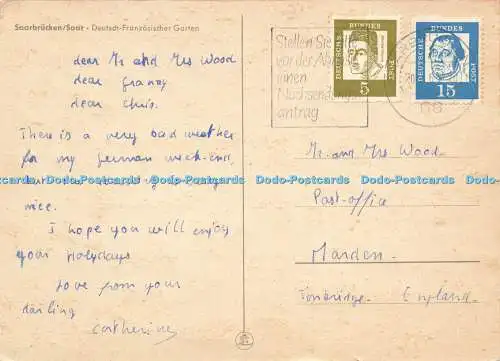 Saarbrücken/Saar - Deutsch-Französischer Garten
dear Mr and Mrs Wood
dear granny
dear chris.
There is a very bad weather
for my german week-end,
but the
nice.
I hope you will enjoy
your holydays
love from your
darling
Catherine
Stellen Sie
vor der
einen
Nachsendungs
antrag
DEUTSCHE
BUNDES
POST
5
DEUTSCHE
BUNDES
POST
15
Mr. and Mrs Wood.
Post-office
Marden.
Tonbridge. England.
Dodo-Postcards Dodo-Postcards Dodo-Postcards Dodo-Postcards